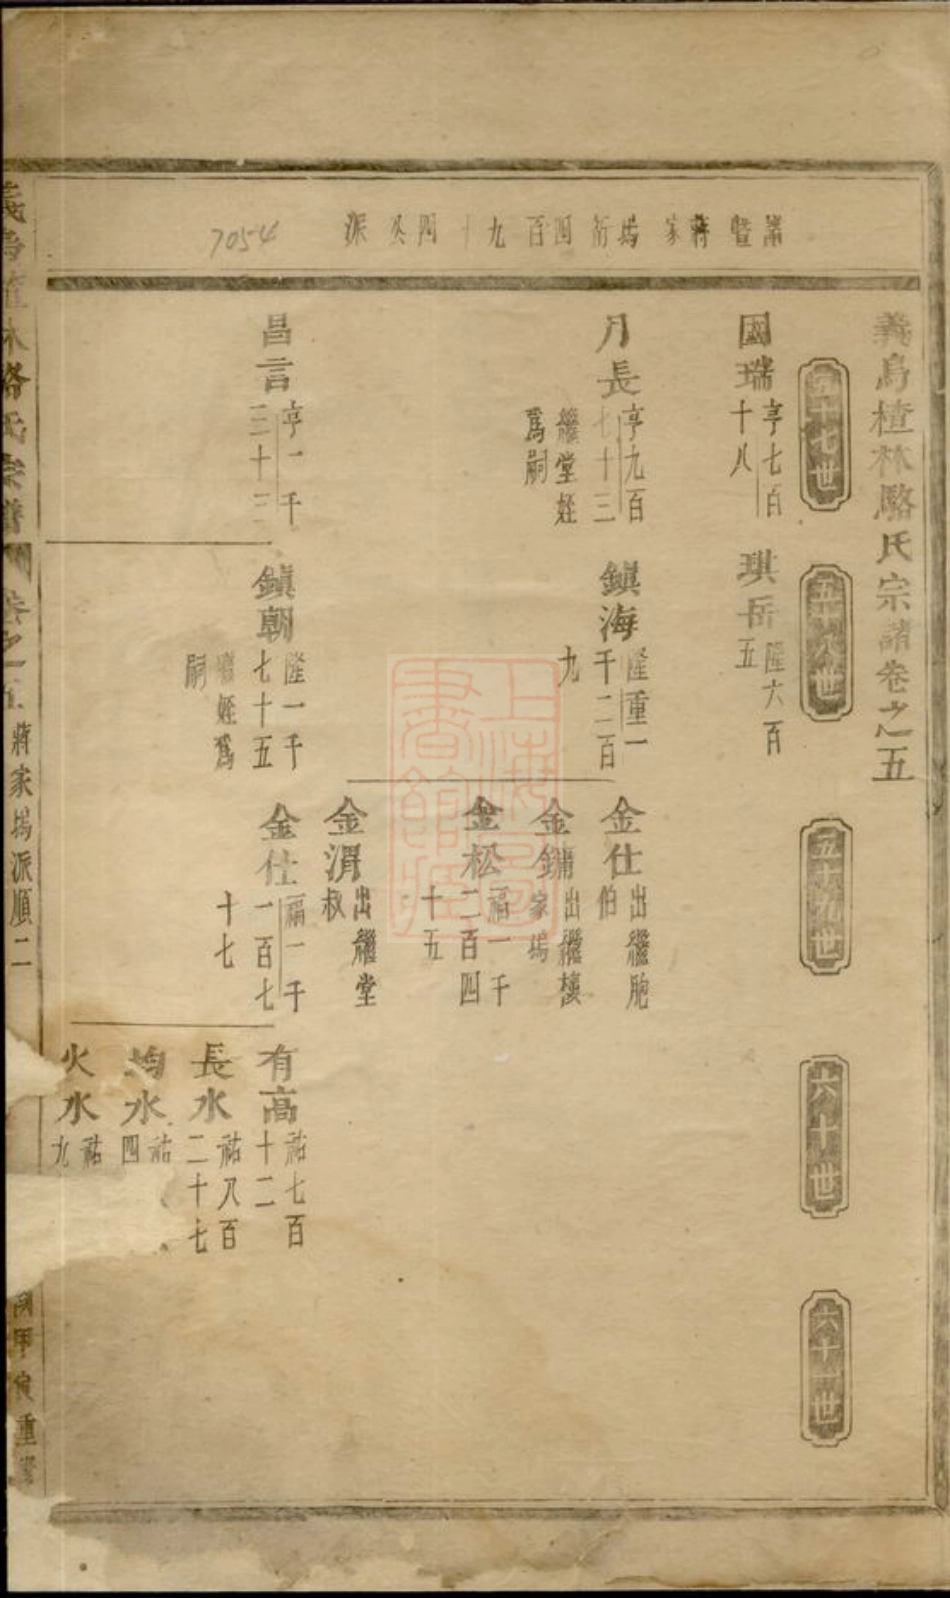 諸暨蔣家塢行四百九十四公派
7054
義烏楂林駱氏宗譜卷之五
五十七世
五十八世
五十九世
六十世
六十一世
國瑞
亨七百
十八
琪岳
隆六百
五
月長
亨九百
七十三
繼堂姪
爲嗣
鎮海
隆重一
千二百
九
金仕
出繼胞
伯
金鏞
出繼樓
家塢
金松
福一千
二百四
十五
金渭
出繼堂
叔
昌言
亨一千
三十三
鎮朝
隆一千
七十五
繼姪爲
嗣
金仕
福一千
一百七
十七
有高
祐七百
十二
長水
祐八百
二十七
水
祐
四
火水
祐
九
義烏楂林駱氏宗譜
卷之五
蔣家塢派順二
甲寅重